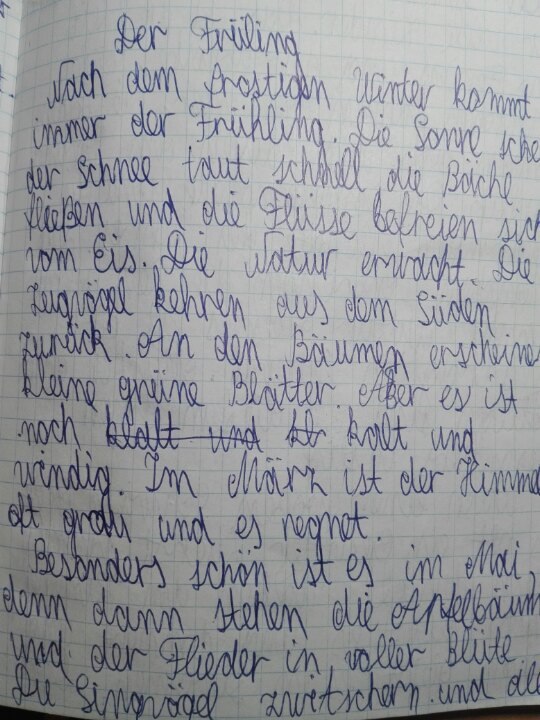 Der Früling
Nach dem frostigen Winter kommt
immer der Frühling. Die Sonne sche
der Schnee taut schnell die Bäche
fließen und die Flüsse befreien sich
vom Eis. Die Natur erwacht. Die
Zugvögel kehren aus dem Süden
zurück. An den Bäumen erscheinen
kleine grüne Blätter. Aber es ist
noch klalt und kalt und
windig. Im März ist der Himmel
oft grau und es regnet.
Besonders schön ist es im Mai,
denn dann stehen die Apfelbäum
und der Flieder in voller Blüte.
Die Singvögel zwitschern und